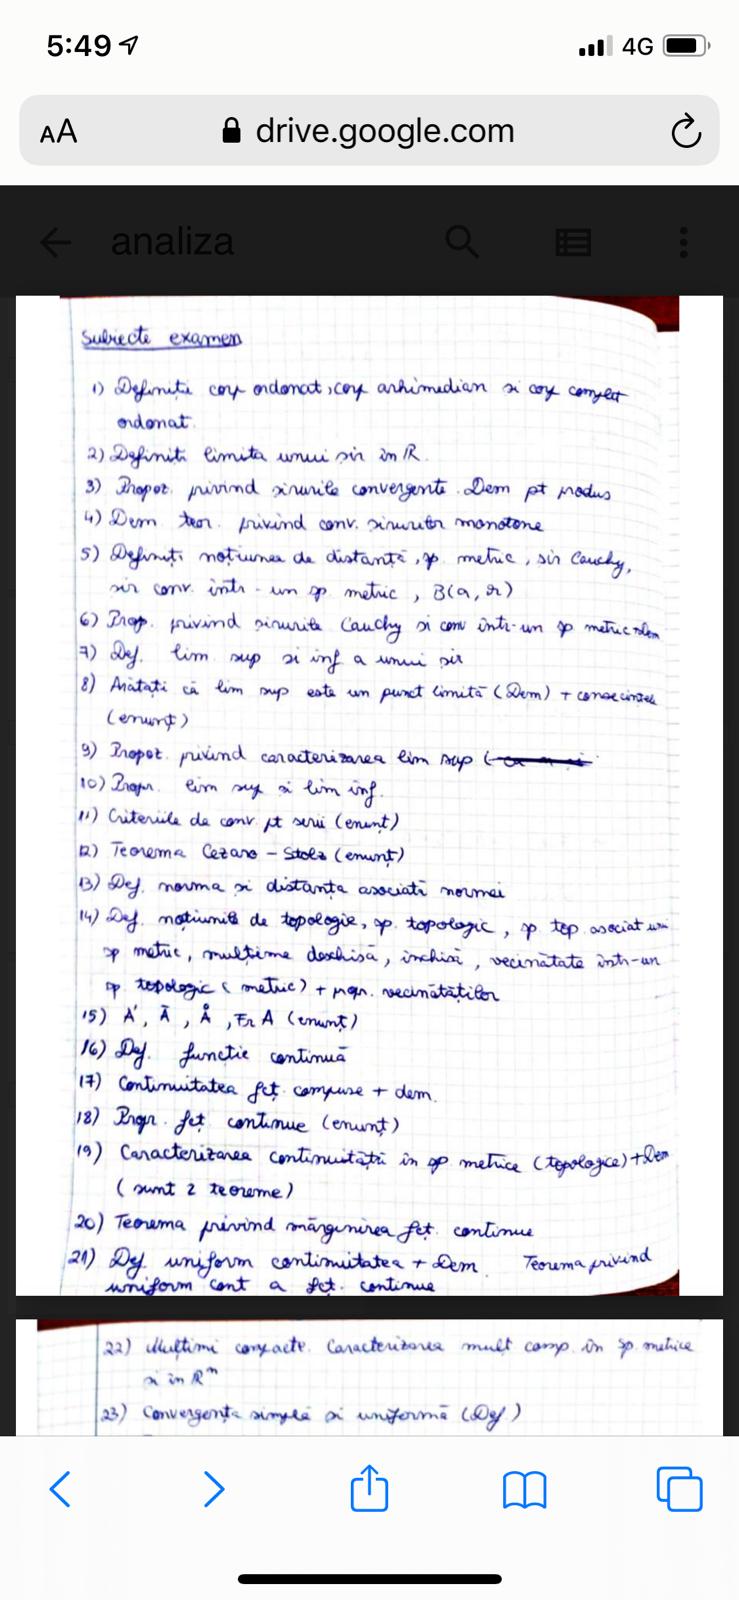 5:49
4G
AA
drive.google.com
analiza
Subiecte examen
1) Definiți corp ordonat, corp arhimedian si corp complet
ordonat.
2) Definiti limita unui sir in R.
3) Propoz. privind sirurile convergente. Dem pt produs
4) Dem teor. privind conv. sirurilor monotone
5) Definiți noțiunea de distanță, sp. metric, sir Cauchy,
sir conv. intr-un sp metric, B(a, r)
6) Prop. privind sirurile Cauchy si conv intr-un sp metric + dem
7) Def. lim sup si inf a unui sir
8) Arătați că lim sup este un punct limită (Dem) + consecintele
(enunț)
9) Propoz. privind caracterizarea lim sup (
10) Propr. lim sup si lim inf.
11) Criteriile de conv pt serii (enunț)
12) Teorema Cezaro - Stolz (enunț)
13) Def. norma si distanța asociată normei
14) Def. noțiunile de topologie, sp. topologic, sp top. asociat unui
sp metric, mulțime deschisă, inchisă, vecinătate intr-un
sp. topologic (metric) + propr. vecinătăților
15) A', Ā, Å, Fr A (enunț)
16) Def. functie continuă
17) Continuitatea fcț. compuse + dem.
18) Propr. fcț. continue (enunț)
19) Caracterizarea continuității in sp metrice (topologice) + Dem
(sunt 2 teoreme)
20) Teorema privind mărginirea fcț. continue
21) Def uniform continuitatea + Dem. Teorema privind
uniform cont a fcț. continue
22) Mulțimi compacte. Caracterizarea mult comp. in sp. metrice
si in Rⁿ
23) Convergența simplă si uniformă (Def)